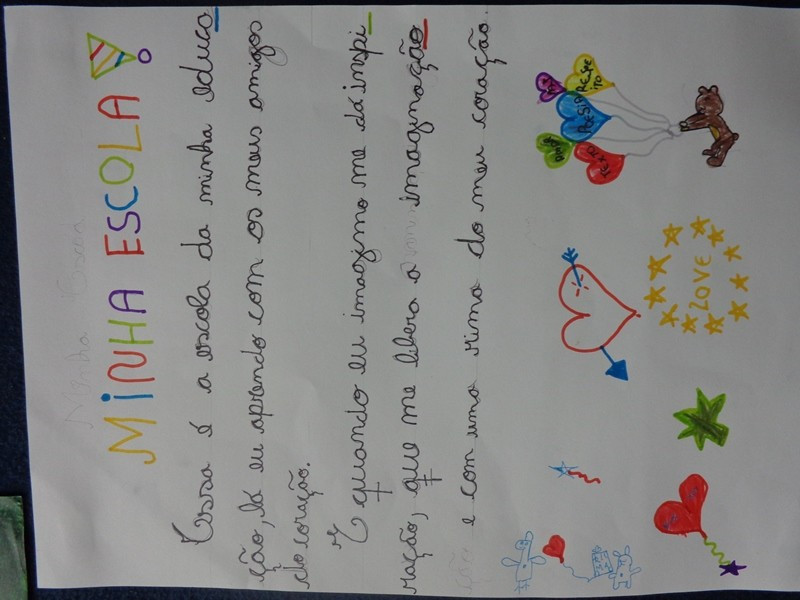 MINHA ESCOLA!
Essa é a escola da minha educa
ção, lá eu aprendo com os meus amigos
do coração.
E quando eu imagino me dá inspi
ração, que me libera a imaginação
e com uma rima do meu coração.
RESPEITO
POESIA
TEXTO
LOVE